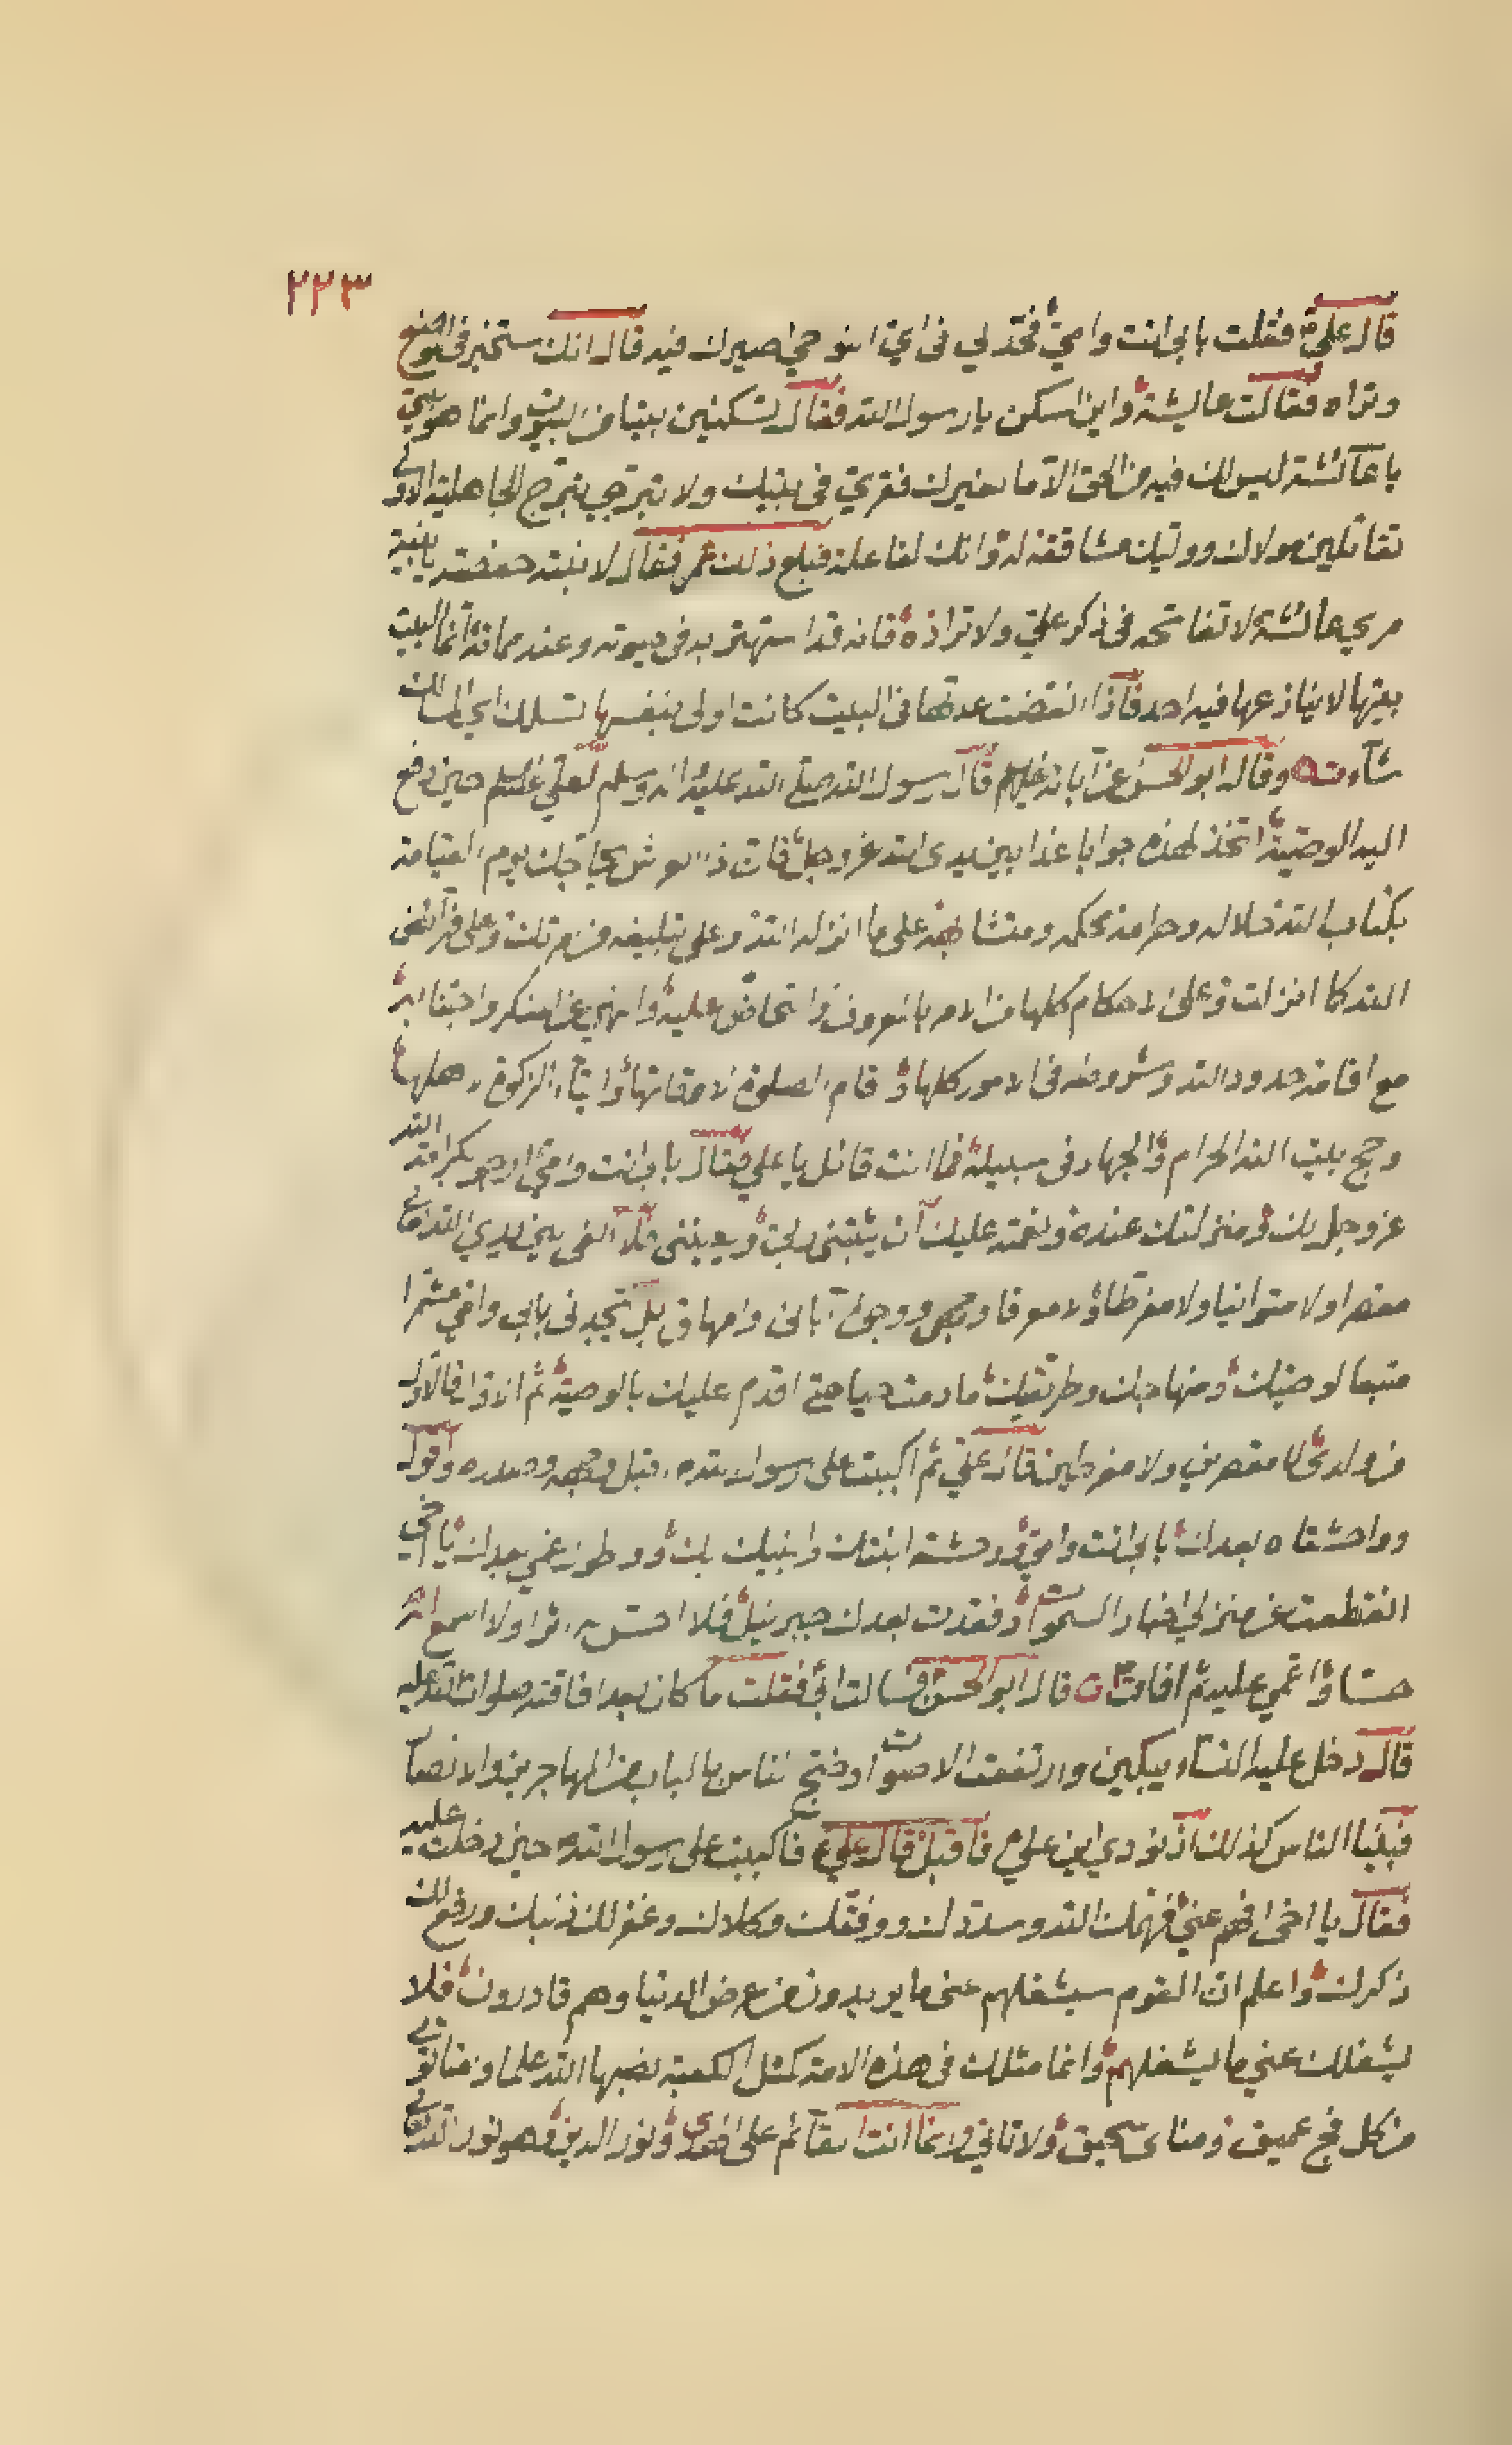 ٢٢٣
قال علي ع فقلت بابي انت وامي فحد لي في اي النواحي اصيرك فيه قال انك ستخبر في الموضع
وتراه فقالت عايشة واين اسكن يا رسول الله فقال تسكنين بيتا من البيوت وانما هو بيتي
يا عائشة ليس لك فيه من الحق الا ما لغيرك فقري في بيتك ولا تبرجي تبرج الجاهلية الاولى
تقاتلين مولاك ووليك مشاققة له وانك لفاعلة فبلغ ذلك عمر فقال لابنته حفصة يا بنية
مري عائشة لا تفاتحه في ذكر علي ولا تراده فانه قد استهتر به في حيوته وعند مماته انما البيت
بيتها لا ينازعها فيه احد فاذا انقضت عدتها في البيت كانت اولى بنفسها تسلك اي المسالك
شاءت وقال ابو الحسن عن آبائه عليهم قال رسول الله صلى الله عليه وآله وسلم لعلي عليه السلم حين دفع
اليه الوصية اتخذ لهذه جوابا غدا بين يدى الله عز وجل فان ذا العرش يحاجك يوم القيامة
بكتاب الله حلاله وحرامه محكمه ومتشابهه على ما انزله الله وعلى تبليغه من امرتك وعلى فرائض
الله كما انزلت وعلى الاحكام كلها من الامر بالمعروف والتحاض عليه والنهي عن المنكر واجتنابه
مع اقامة حدود الله وشروطه في الامور كلها واقام الصلوة لاوقاتها وايتاء الزكوة اهلها
وحج بيت الله الحرام والجهاد في سبيله فما انت قائل يا علي فقال بابي انت وامي ارجو بكرامة الله
عز وجل لك ومنزلتك عنده ونعمته عليك ان يثبتني ربي ويعينني فلا القى بين يدي الله تعالى
مقصرا ولا متوانيا ولا مفرطا ولا معرفا وجهي ووجوه آبائي وامهاتي بل تجدني بابي وامي مشمرا
متبعا لوصيتك ومنهاجك وطريقتك ما دمت حيا حتى اقدم عليك بالوصية ثم الاول فالاول
من ولدى لا مقصرين ولا مفرطين قال علي ثم اكببت على رسول الله ص اقبل وجهه وصدره واقول
وواحشتاه بعدك بابي انت وامي ووحشة ابنتك وابنيك بك ووطول غمي بعدك يا اخي
انقطعت عن منزلي اخبار السموات وفقدت بعدك جبرئيل فلا احس به اثرا ولا اسمع له
حسا واغمي عليه ثم افاق قال ابو الحسن فسالت ابي فقلت ما كان بعد افاقته صلوات الله عليه
قال دخل عليه النساء يبكين وارتفعت الاصوات وضج الناس بالباب من المهاجرين والانصار
فبينا الناس كذلك اذ نودي اين علي فاقبل قال علي ع فاكببت على رسول الله ص حين دخلت عليه
فقال يا اخي افهم عني فهمك الله وسددك ووفقك وكلاك وغفر لك ذنبك ورفع لك
ذكرك واعلم ان القوم سيشغلهم عني ما يريدون من عرض الدنيا وهم قادرون فلا
يشغلك عني ما يشغلهم وانما مثلك في هذه الامة كمثل الكعبة نصبها الله علما وانما تؤتى
من كل فج عميق ومناى سحيق ولا تاتي وانما انت القائم على الهدى ونور الدين وهو نور الله